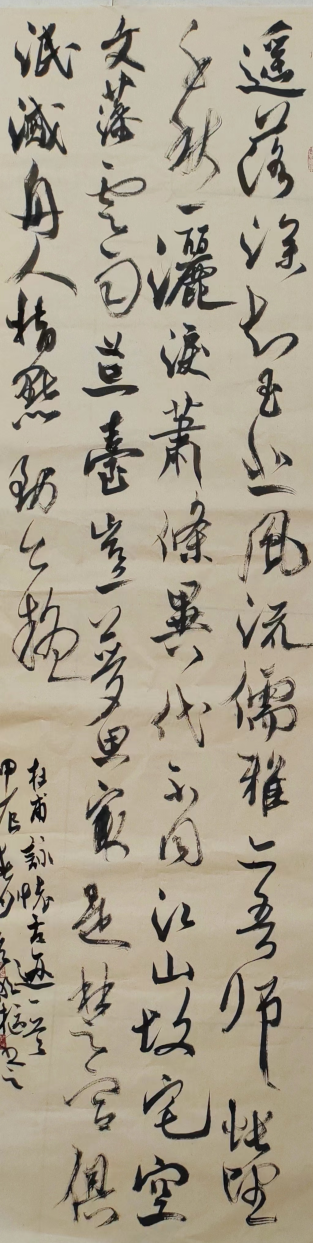 遥落深知玉悲風流儒雅亦吾師悵望
千秋一灑淚蕭條異代不同江山故宅空
文藻雲雨荒臺豈夢思最是楚宮俱
泯滅舟人指點到今疑
杜甫詠懷古迹一首
甲辰